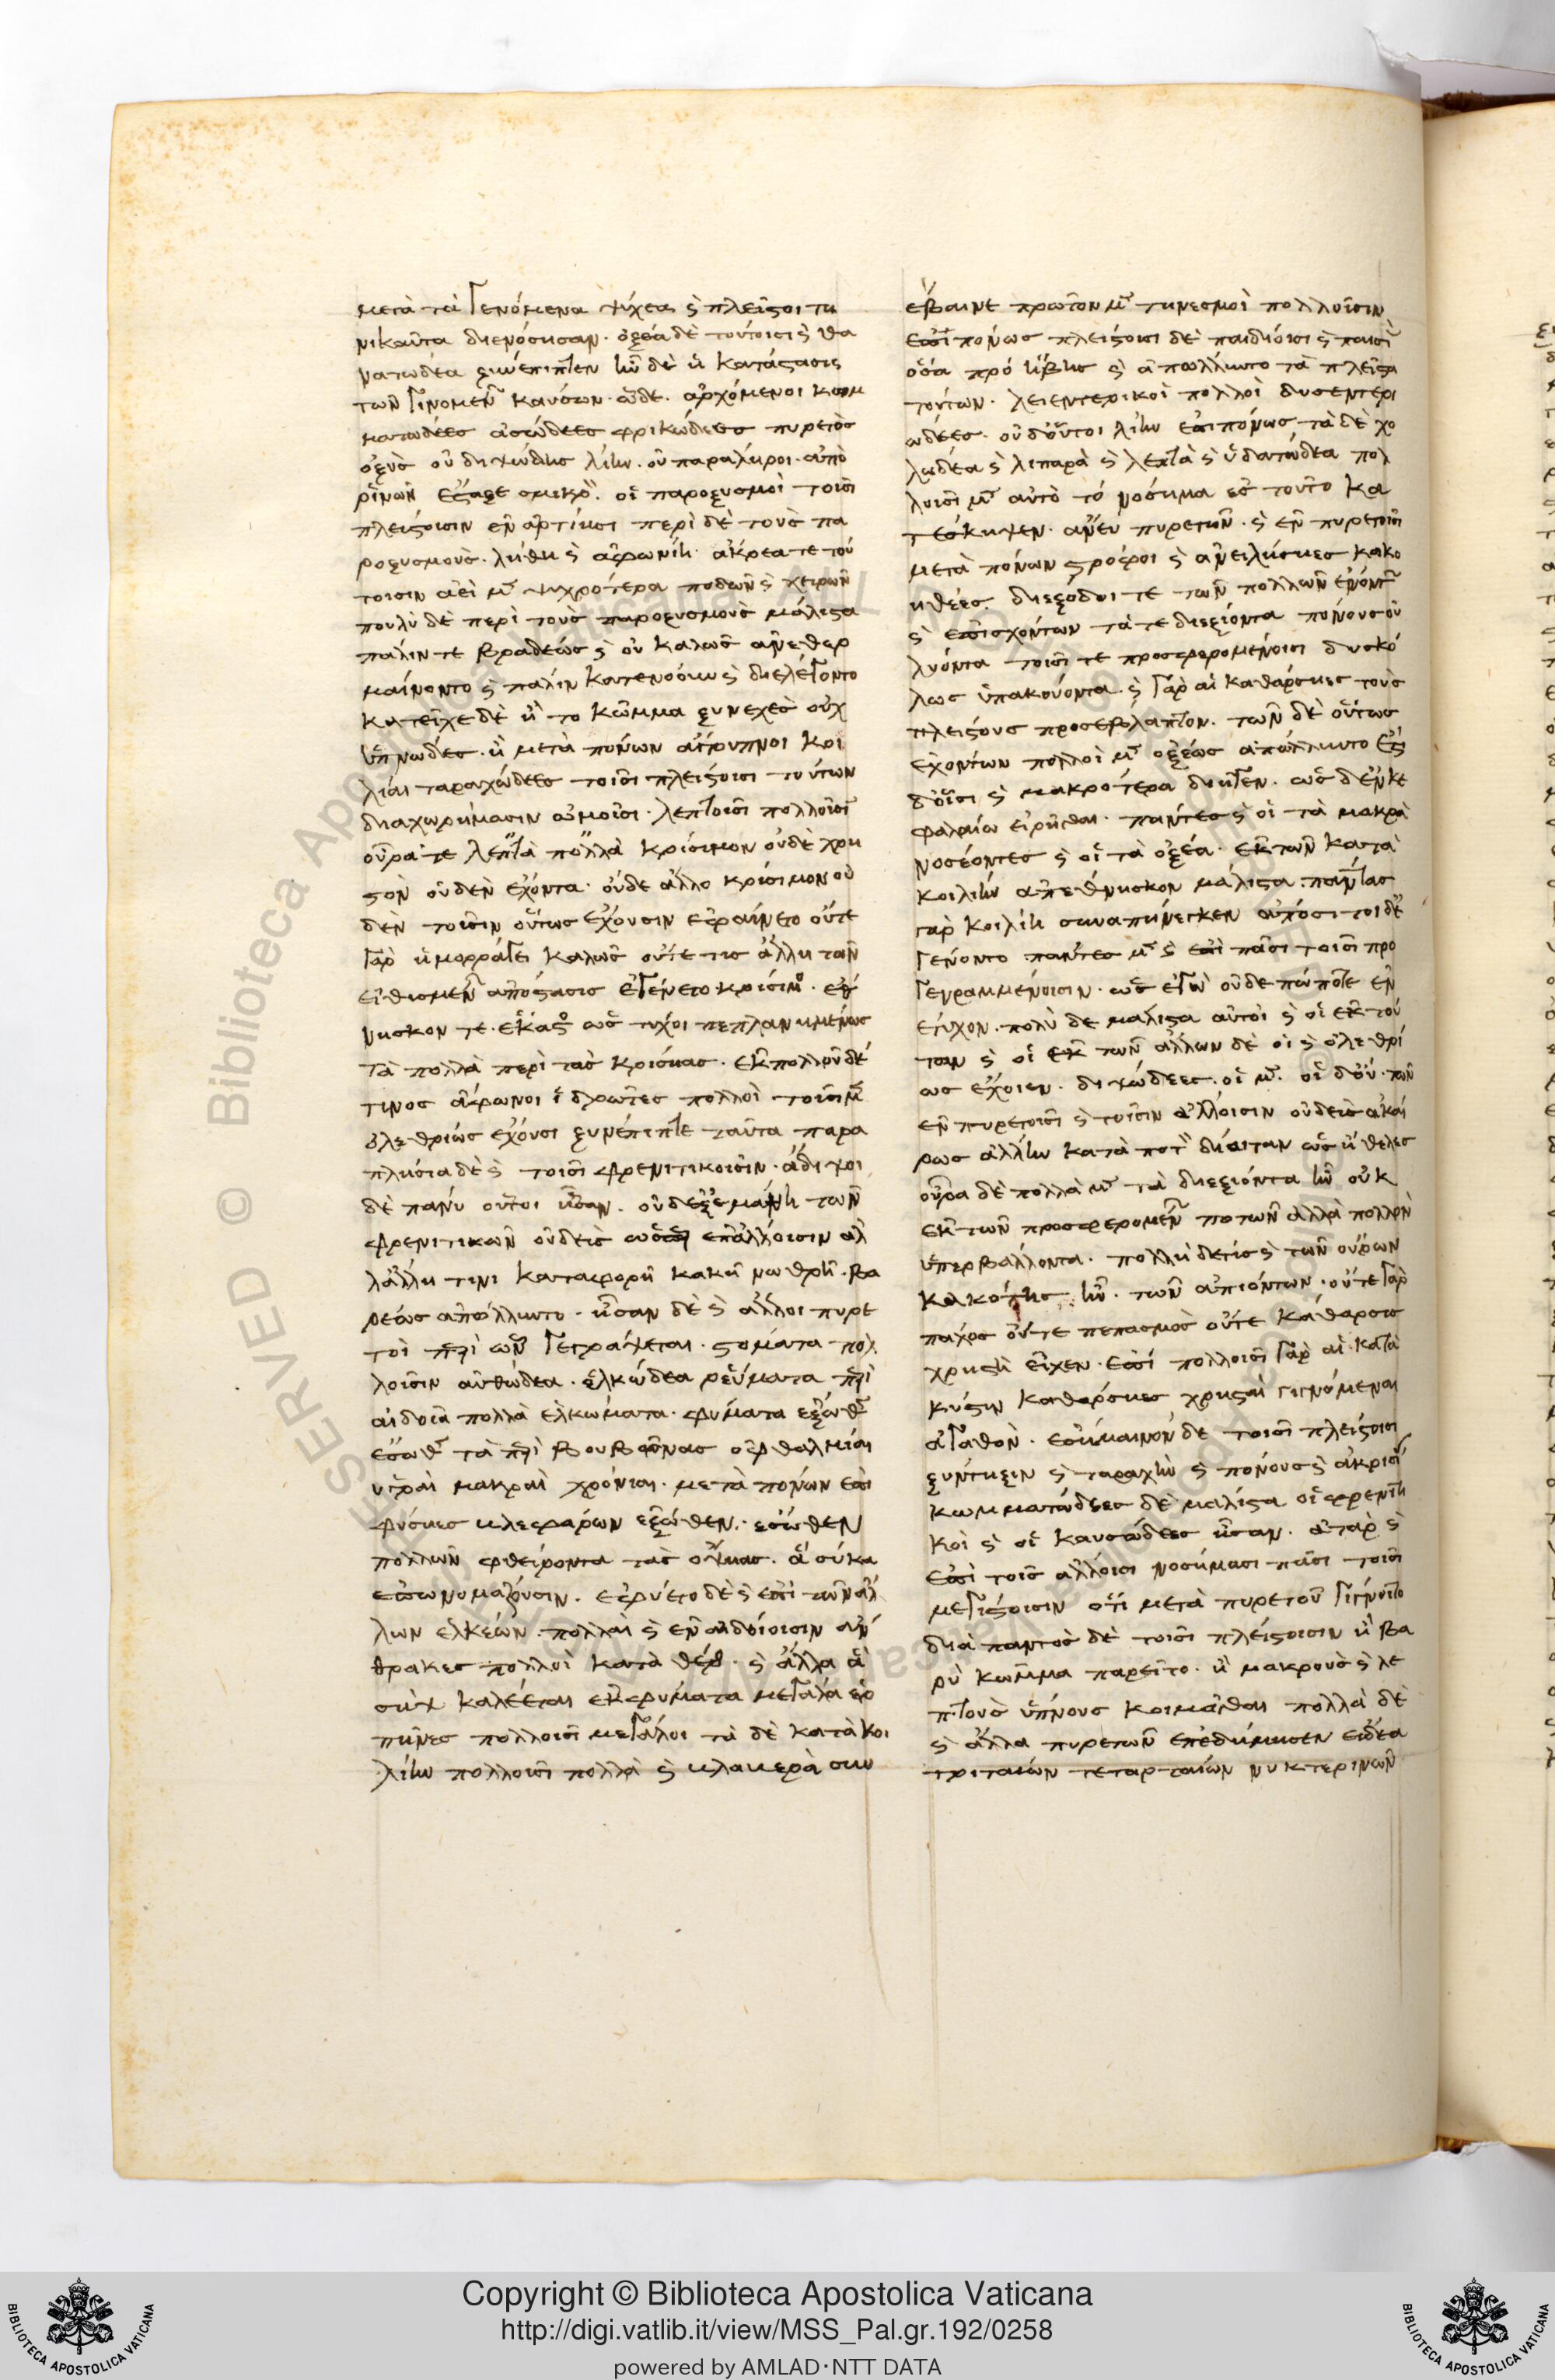 μετὰ τὰ γενόμενα ψύχεα ϗ πλεῖστοι τη
νικαῦτα διενόσησαν· ὀξέα δὲ τούτοισι ϗ θα
νατώδέα ξυνέπιπτεν ἦν δὲ ἡ κατάστασις
τῶν γινομεν καύσων· ὧδε· ἀρχόμενοι κωμ
ματώδεες ἀσώδεες φρικώδεες πυρετὸς
ὀξὺς οὐ διψώδης λίην· οὐ παράληροι· ἀπὸ
ῥινῶν ἔσταξε σμικρὰ· οἱ παροξυσμοὶ τοισι
πλείστοισιν ἐν ἀρτίησι περὶ δὲ τοὺς πα
ροξυσμοὺς· λήθη ϗ ἀφωνίη· ἄκρεα τε τού
τοισιν αἰεὶ μ ψυχρότερα ποδῶν ϗ χειρῶν
πουλὺ δὲ περὶ τοὺς παροξυσμοὺς μάλιστα
πάλιν τε βραδέως ϗ οὐ καλῶς ἀνεθερ
μαίνοντο ϗ πάλιν κατενόουν ϗ διελέγοντο
κατεῖχε δὲ ἢ το κῶμμα ξυνεχὲς οὐχ
ὑπνῶδες· ἢ μετὰ πόνων ἄγρυπνοι κοι
λίαι ταραχώδεες τοῖσι πλείστοισι τούτων
διαχωρήμασιν ὠμοῖσι· λεπτοῖσι πολλοῖσι
οὖρα τε λεπτὰ πολλὰ κρίσιμον οὐδὲ χρη
στὸν οὐδὲν ἔχοντα· οὐδε ἄλλο κρίσιμον οὐ
δὲν τοῖσιν οὕτως ἔχουσιν ἐφαίνετο οὔτε
γὰρ ἡμορράγει καλῶς οὔτε τις ἄλλη τῶν
εἰθισμεν ἀπόστασις ἐγένετο κρίσιμο· ἔθ
νησκον τε· ἕκαστο ὡς τύχοι πεπλανημένως
τὰ πολλὰ περὶ τὰς κρίσηας· ἐκ πολλοῦ δέ
τινος ἄφωνοι ἱδρῶτες πολλοὶ τοισι μ
ὀλεθρίως ἔχουσι ξυνέπιπτε ταῦτα παρα
πλήσια δὲ ϗ τοισι φρενιτικοισιν· ἄδιψοι
δὲ πάνυ οὗτοι ἦσαν· οὐδ ἐξεμάνη τῶν
φρενιτικῶν οὐδεὶς ὡς ἐπ ἄλλοισιν ἀλ
λ ἄλλη τινι καταφορῆ κακῆ νωθρῆ· βα
ρέως ἀπόλλυντο· ἦσαν δὲ ϗ ἄλλοι πυρε
τοὶ περὶ ὧν γεγράψεται· στόματα πολ
λοῖσιν ἀφθώδεα· ἑλκώδεα ῥεύματα περὶ
αἰδοῖα πολλὰ ἑλκώματα· φύματα ἔξωθ
ἔσωθ τὰ περὶ βουβῶνας ὀφθαλμίαι
ὑγραὶ μακραὶ χρόνιαι· μετὰ πόνων ἐπι
φύσηες κλεφάρων ἔξωθεν· ἔσωθεν
πολλῶν φθείροντα τὰς ὄψηας· ἃ σύκα
ἐπονομάζουσιν· ἐφύετο δὲ ϗ ἐπὶ τῶν ἄλ
λων ἑλκέων· πολλαὶ ϗ ἐν αἰδοίοισιν ἄν
θρακες πολλοὶ κατὰ θέρ· ϗ ἄλλα ἃ
σὴψ καλέεται ἐκφύματα μεγάλα ἕρ
πηνες πολλοισι μεγάλοι τὰ δὲ κατὰ κοι
λίην πολλοισι πολλὰ ϗ κλακερὰ συν
έβαινε πρῶτον μ τηνεσμοὶ πολλοῖσιν
ἐπιπόνως πλείστοισι δὲ παιδίοισι ϗ πᾶσι
ὅσα πρό ἥβης ϗ ἀπώλλυντο τὰ πλεῖστα
τούτων· λειεντερικοὶ πολλοὶ δυσεντερι
ώδεες· οὐδ οὗτοι λίην ἐπιπόνως τὰ δὲ χο
λώδεα ϗ λιπαρὰ ϗ λεπτὰ ϗ ὑδατώδεα πολ
λοισι μ αὐτὸ τό νοσημα ἐς τοῦτο κα
τέσκηψεν· ἄνευ πυρετῶν· ϗ ἐν πυρετοῖσι
μετὰ πόνων στρόφοι ϗ ἀνειλήσηες κακο
ήθέες· διέξοδοι τε τῶν πολλῶν ἐνόντ
ϗ ἐπισχόντων τά τε διεξιόντα πόνους οὐ
λύοντα τοισι τε προσφερομένοισι δυσκό
λως ὑπακούοντα ϗ γὰρ αἱ καθάρσηες τοὺς
πλείστους προσέβλαπτον· τῶν δὲ οὕτως
ἐχόντων πολλοὶ μ ὀξέως ἀπώλλυντο ἔς
δ οἷσι ϗ μακρότερα διῆγεν· ὡς δ ἐν κε
φαλαίω εἰρῆσθαι· πάντες ϗ οἱ τὰ μακρὰ
νοσέοντες ϗ οἱ τὰ ὀξέα· ἐκ τῶν κατὰ
κοιλίην ἀπέθνησκον μάλιστα· πάντας
γὰρ κοιλίη συναπήνεγκεν ἀπόσιτοι δ ἐ
γένοντο πάντες μ ϗ ἐπὶ πᾶσι τοισι προ
γεγραμμένοισιν· ὡς ἐγὼ οὐδε πώποτε ἐν
έτυχον· πολὺ δε μάλιστα αὐτοὶ ϗ οἱ ἐκ τού
των ϗ οἱ ἐκ τῶν ἄλλων δὲ οἱ ϗ ὀλεθρί
ως ἔχοιεν· διψώδεες οἱ μ· οἱ δ οὔ· τῶν
ἐν πυρετοισι ϗ τοισιν ἄλλοισιν οὐδεὶς ἀκαί
ρως ἀλλ ἦν κατὰ ποτ δίαιταν ὡς ἤθελες
οὖρα δὲ πολλὰ μ τὰ διεξιόντα ἦν οὐκ
ἐκ τῶν προσφερομεν ποτῶν ἀλλὰ πολλὸν
ὑπερβάλλοντα· πολλὴ δέ τις ϗ τῶν οὔρων
κακότης ἦν· τῶν ἀπιόντων· οὔτε γὰρ
πάχος οὔτε πεπασμὸς οὔτε κάθαρσις
χρηστὴ εἶχεν· ἐπί πολλοισι γὰρ αἱ κατὰ
κύστιν καθάρσηες χρησταὶ γιγνόμεναι
ἀγαθὸν· ἐσήμαινον δε τοισι πλείστοισι
ξύντηξιν ϗ ταραχὴν ϗ πόνους ϗ ἀκρισί
κωμματώδεες δὲ μάλιστα οἱ φρενιτι
κοὶ ϗ οἱ καυσώδεες ἦσαν· ἀτὰρ ϗ
ἐπὶ τοῖς ἄλλοισι νοσήμασι πᾶσι τοισι
μεγίστοισιν ὅτι μετὰ πυρετοῦ γίγνοιτο
διὰ παντὸς δὲ τοισι πλείστοισιν ἢ βα
ρὺ κῶμμα παρείπτο· ἢ μακροὺς ϗ λε
πτοὺς ὕπνους κοιμᾶσθαι πολλὰ δὲ
ϗ ἄλλα πυρετῶν ἐπεδήμησεν εἴδεα
τριταίων τεταρταίων νυκτερινῶν
Copyright © Biblioteca Apostolica Vaticana
http://digi.vatlib.it/view/MSS_Pal.gr.192/0258
powered by AMLAD·NTT DATA